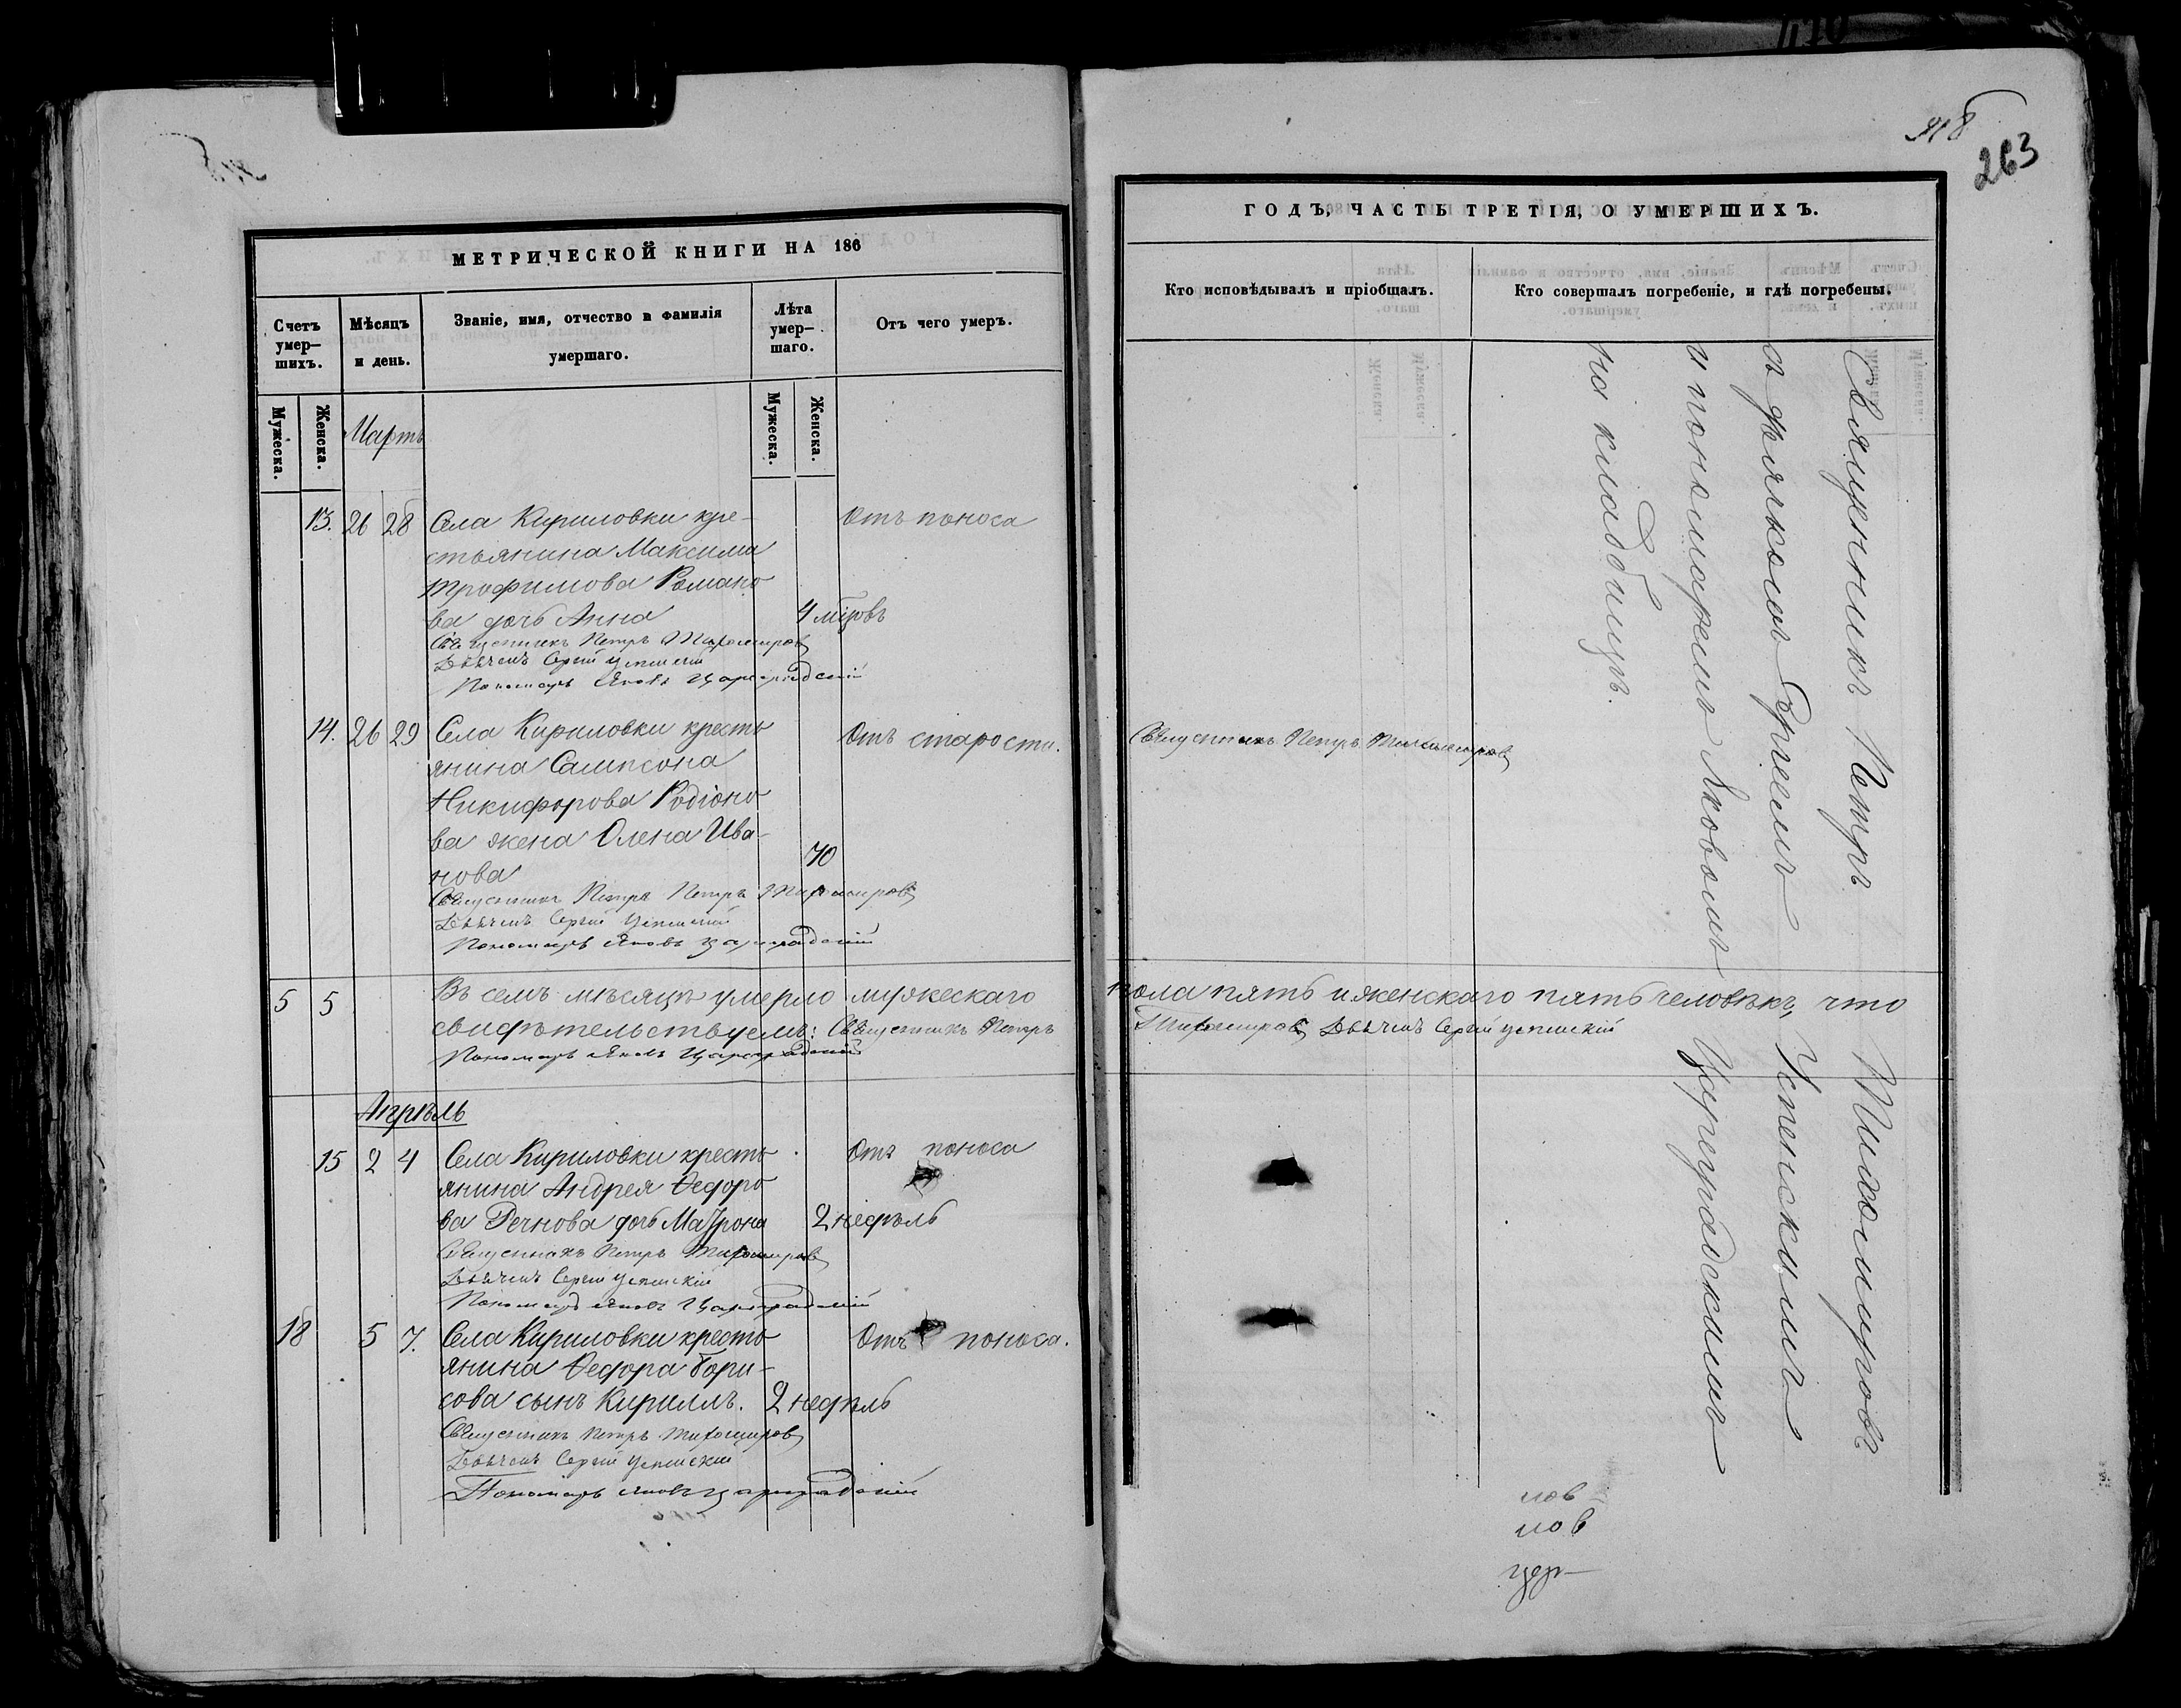 263
МЕТРИЧЕСКОЙ КНИГИ НА 186
Счетъ умер- шихъ.
Мѣсяцъ и день.
Званіе, имя, отчество и фамилія умершаго.
Лѣта умер- шаго.
Отъ чего умеръ.
Мужеска.
Женска.
Мартъ
Мужеска.
Женска.
13. 26 28 Села Кириловки кре- Отъ поноса
стьянина Максима
Трофимова Романо
ва дочь Анна 4 мѣсовъ
Священникъ Петръ Тихомировъ
Дьячекъ Сергій Успенскій
Пономарь Яковъ Цареградскій
14. 26 29 Села Кириловки кресть Отъ старости.
янина Сампсона
Никифорова Родіоно
ва жена Олена Ива-
нова 70
Священникъ Петръ Петръ Тихомировъ
Дьячекъ Сергій Успенскій
Пономарь Яковъ Цареградскій
5 5 Въ семъ мѣсяцѣ умерло мужескаго
свидѣтельствуемъ: Священникъ Петръ
Пономарь Яковъ Цареградскій
Апрѣль
15 2 4 Села Кириловки кресть Отъ поноса
янина Андрея Ѳедоро
ва Речнова дочь Матрона 2 недѣль
Священникъ Петръ Тихомировъ
Дьячекъ Сергій Успенскій
Пономарь Яковъ Цареградскій
18 5 7. Села Кириловки кресть Отъ поноса.
янина Ѳедора Бори-
сова сынъ Кириллъ. 2 недѣль
Священникъ Петръ Тихомировъ
Дьячекъ Сергій Успенскій
Пономарь Яковъ Цареградскій
ГОДЪ, ЧАСТЬ ТРЕТІЯ, О УМЕРШИХЪ.
Кто исповѣдывалъ и пріобщалъ.
Кто совершалъ погребеніе, и гдѣ погребены.
Священникъ Петръ Тихомировъ
пола пять и женскаго пять человѣкъ, что
Тихомировъ Дьячекъ Сергій Успенскій
Священникъ Петръ Тихомировъ
съ дьячкомъ Сергѣемъ Успенскимъ
и пономаремъ Яковомъ Цареградскимъ
на кладбищѣ.